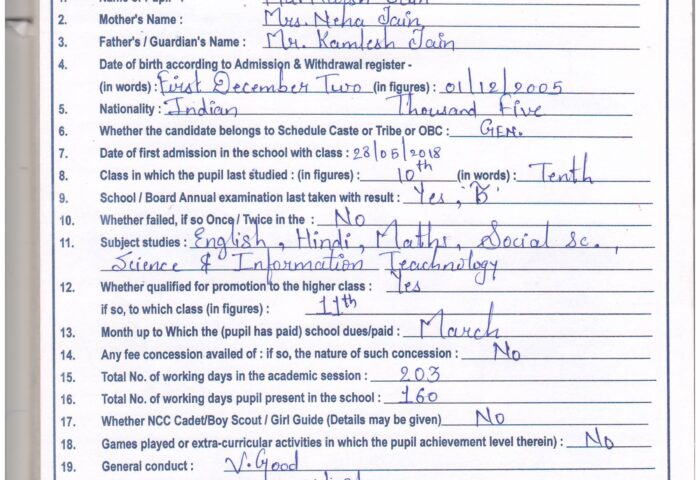 1. Name of Pupil :
2. Mother's Name : Mrs. Neha Jain
3. Father's / Guardian's Name : Mr. Kamlesh Jain
4. Date of birth according to Admission & Withdrawal register -
(in words) : First December Two (in figures) : 01/12/2005
5. Nationality : Indian Thousand Five
6. Whether the candidate belongs to Schedule Caste or Tribe or OBC : GEN.
7. Date of first admission in the school with class : 28/05/2018
8. Class in which the pupil last studied : (in figures) : 10th (in words) : Tenth
9. School / Board Annual examination last taken with result : Yes, 'B'
10. Whether failed, if so Once / Twice in the : No
11. Subject studies : English, Hindi, Maths, Social Sc.,
Science & Information Teachnology
12. Whether qualified for promotion to the higher class : Yes
if so, to which class (in figures) : 11th
13. Month up to Which the (pupil has paid) school dues/paid : March
14. Any fee concession availed of : if so, the nature of such concession : No
15. Total No. of working days in the academic session : 203
16. Total No. of working days pupil present in the school : 160
17. Whether NCC Cadet/Boy Scout / Girl Guide (Details may be given) No
18. Games played or extra-curricular activities in which the pupil achievement level therein) : No
19. General conduct : V. Good